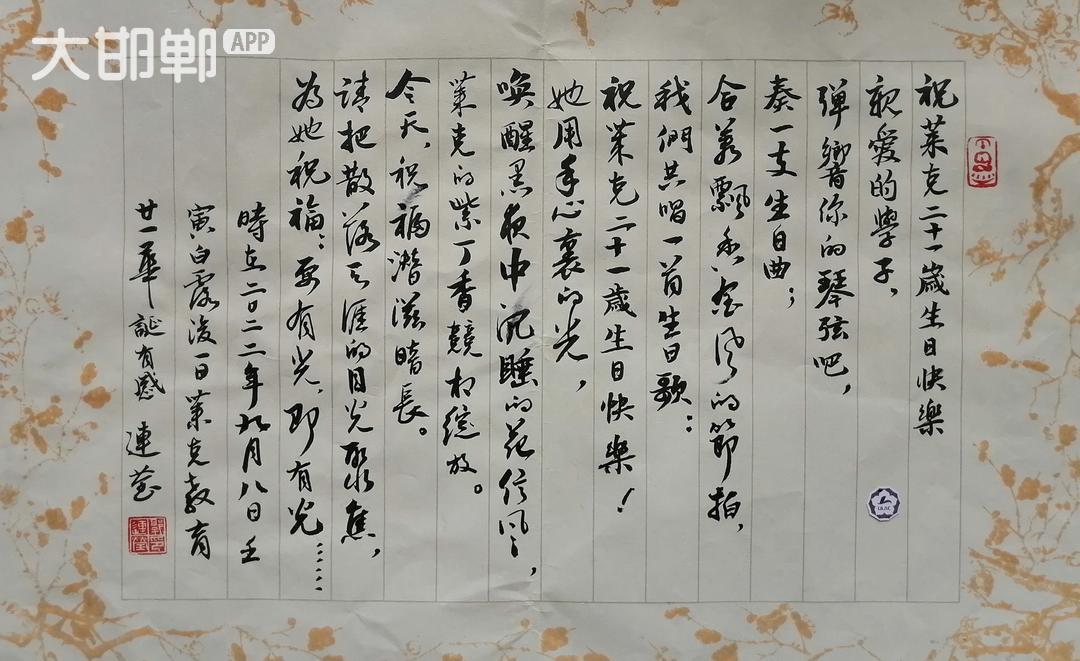 大邯郸APP
祝莱克二十一歲生日快樂
親愛的學子，
弹響你的琴弦吧，
奏一支生日曲；
合着飄香金风的節拍，
我們共唱一首生日歌：
祝莱克二十一歲生日快樂！
她用手心裏的光，
唤醒黑夜中沉睡的花信风，
莱克的紫丁香競相綻放。
今天，祝福潛滋暗長。
請把散落天涯的目光聚焦，
为她祝福：要有光，即有光……
時在二〇二二年九月八日壬
寅白露後一日莱克教育
廿一華誕有感 連